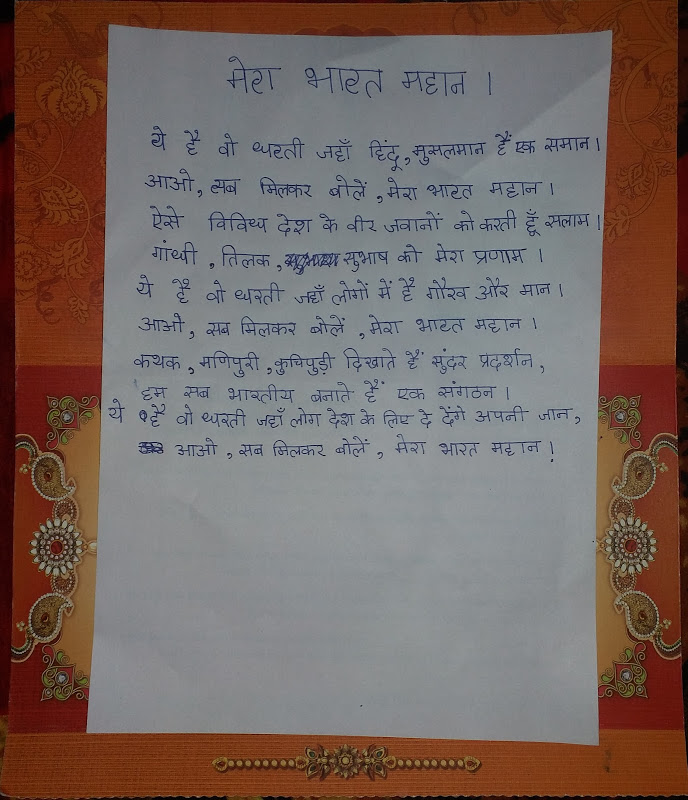 मेरा भारत महान ।
ये है वो धरती जहाँ हिंदू, मुसलमान हैं एक समान ।
आओ, सब मिलकर बोलें, मेरा भारत महान ।
ऐसे विविध देश के वीर जवानों को करती हूँ सलाम ।
गांधी, तिलक, सुभाष को मेरा प्रणाम ।
ये है वो धरती जहाँ लोगों में है गौरव और मान ।
आओ, सब मिलकर बोलें, मेरा भारत महान ।
कथक, मणिपुरी, कुचिपुड़ी दिखाते हैं सुंदर प्रदर्शन,
हम सब भारतीय बनाते हैं एक संगठन ।
ये है वो धरती जहाँ लोग देश के लिए दे देंगे अपनी जान,
आओ, सब मिलकर बोलें, मेरा भारत महान !